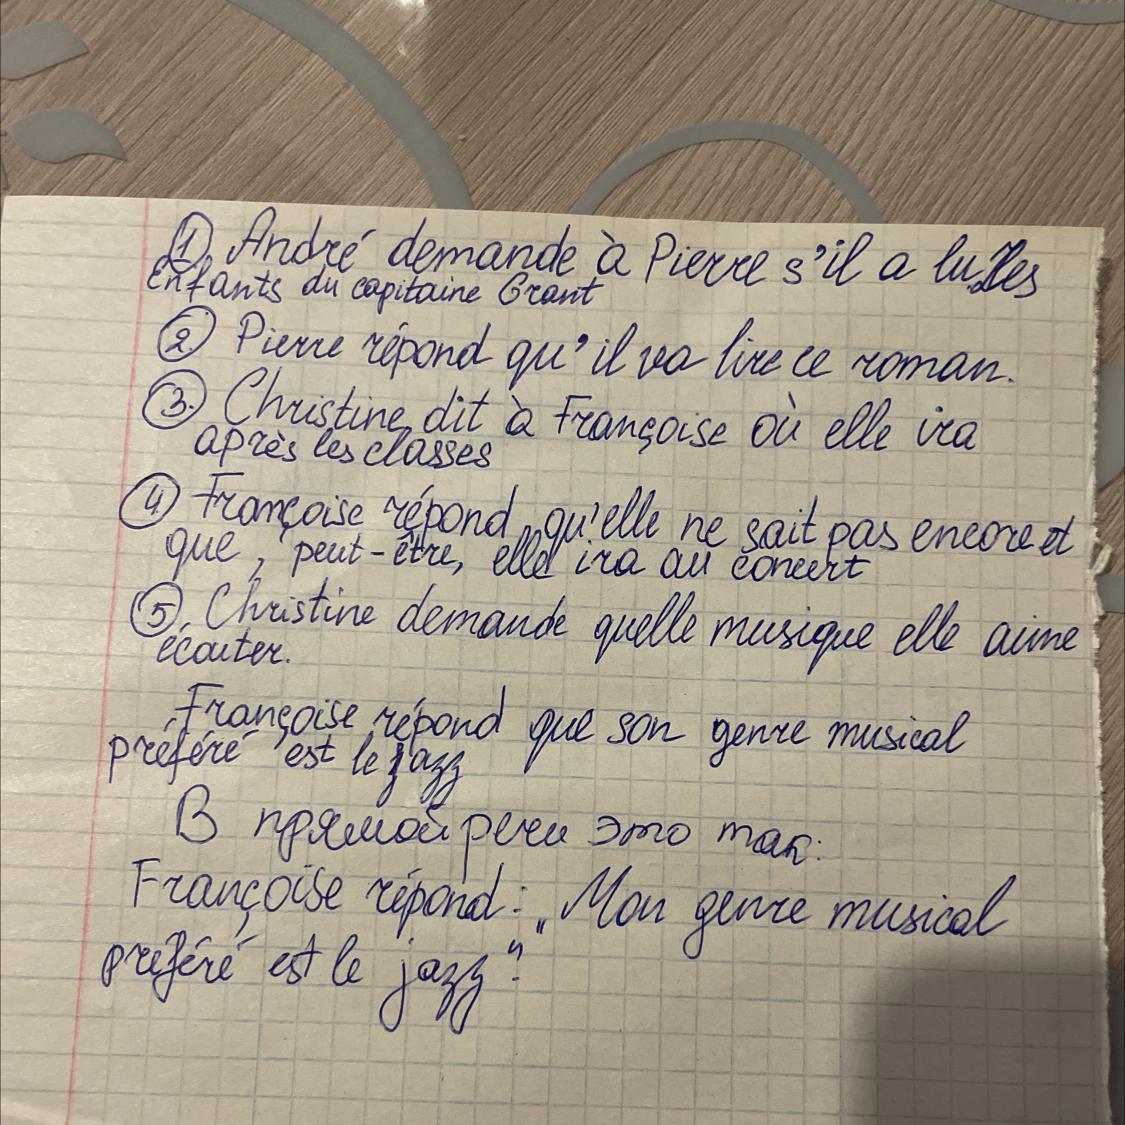 1. André demande à Pierre s'il a lu Les
Enfants du capitaine Grant
2 Pierre répond qu'il va lire ce roman.
3. Christine dit à Françoise où elle ira
après les classes
4. Françoise répond qu'elle ne sait pas encore et
que, peut-être, elle ira au concert
5. Christine demande quelle musique elle aime
écouter.
Françoise répond que son genre musical
préféré est le jazz
В прямой речи это так:
Françoise répond: „Mon genre musical
préféré est le jazz".